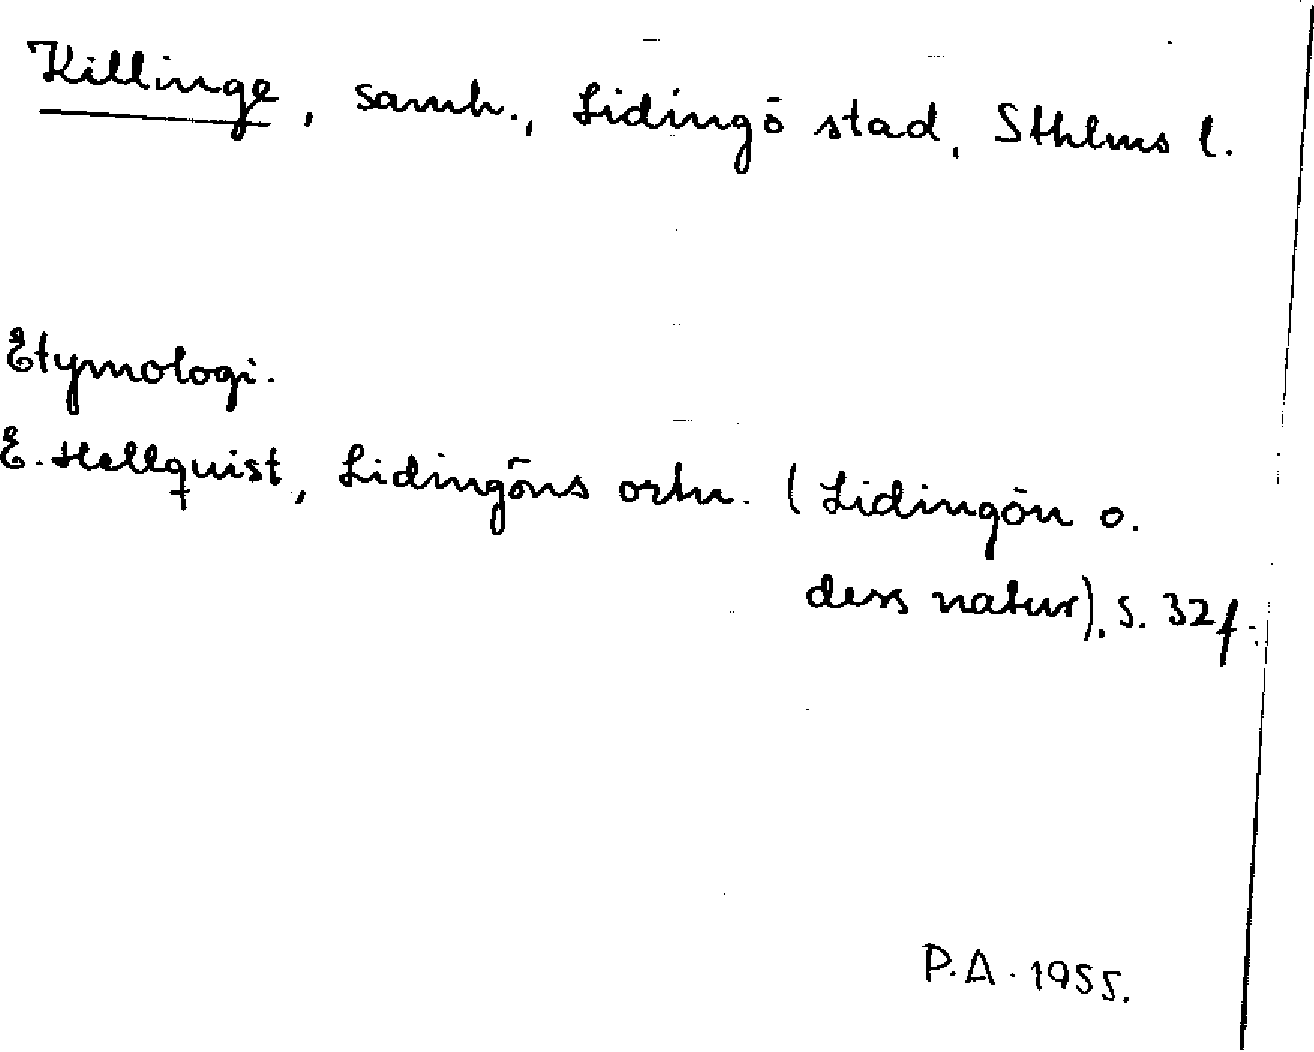 Killinge, samh., Lidingö stad, Sthlms l.
Etymologi.
E. Hellquist, Lidingöns ortn. (Lidingön o.
dess natur), s. 32 f.
P.A. 1955.